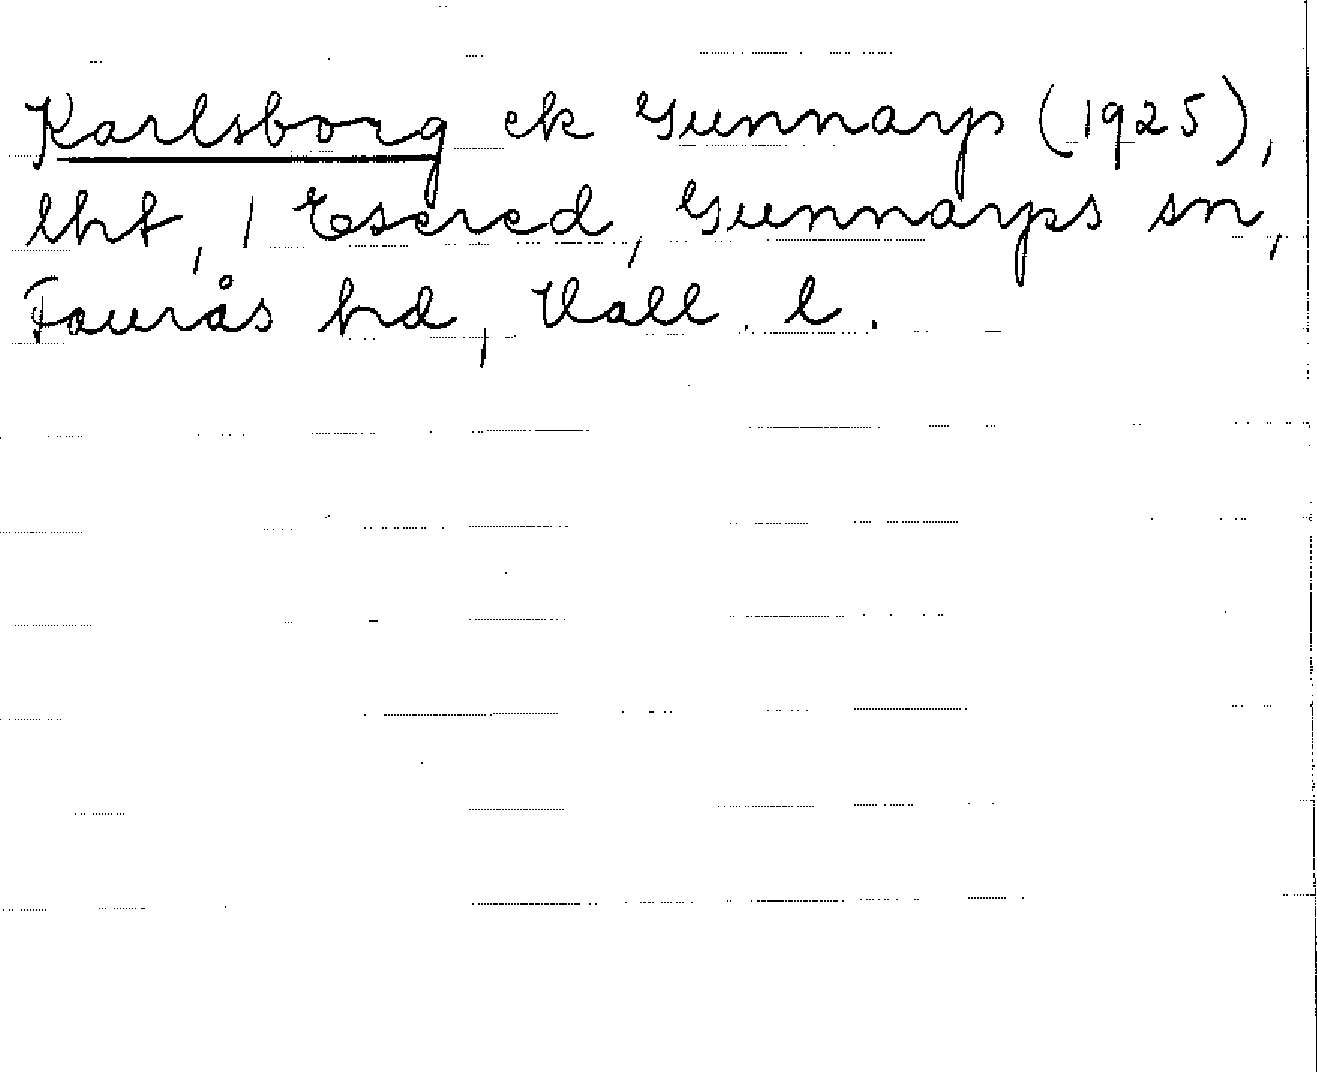 Karlsborg ek Gunnarp (1925),
lht, 1 Esered, Gunnarps sn,
Faurås hd, Hall. l.